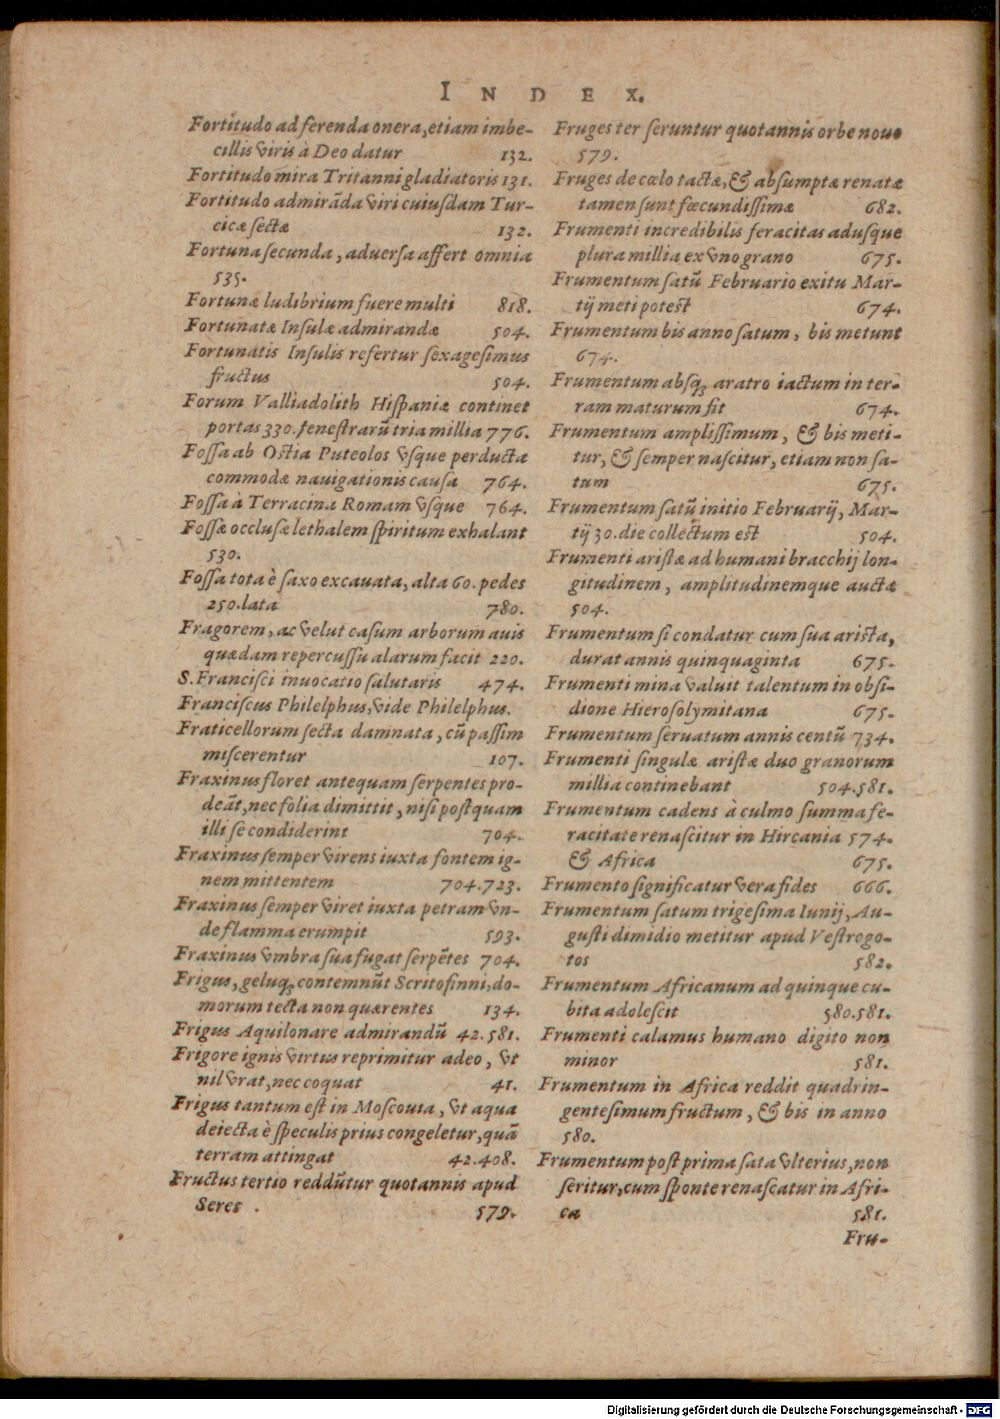 INDEX.
Fortitudo ad ferenda onera, etiam imbe-
cillis viris à Deo datur 132.
Fortitudo mira Tritanni gladiatoris 131.
Fortitudo admirãda viri cuiusdam Tur-
cicæ sectæ 132.
Fortuna secunda, aduersa affert omnia
535.
Fortunæ ludibrium fuere multi 818.
Fortunatæ Insulæ admirandæ 504.
Fortunatis Insulis refertur sexagesimus
fructus 504.
Forum Valliadolith Hispaniæ continet
portas 330. fenestrarũ tria millia 776.
Fossa ab Ostia Puteolos vsque perducta
commodæ nauigationis causa 764.
Fossa à Terracina Romam vsque 764.
Fossæ occlusæ lethalem spiritum exhalant
530.
Fossa tota è saxo excauata, alta 60. pedes
250. lata 780.
Fragorem, ac velut casum arborum auis
quædam repercussu alarum facit 220.
S. Francisci inuocatio salutaris 474.
Franciscus Philelphus, vide Philelphus.
Fraticellorum secta damnata, cũ passim
miscerentur 107.
Fraxinus floret antequam serpentes pro-
deãt, nec folia dimittit, nisi postquam
illi se condiderint 704.
Fraxinus semper virens iuxta fontem ig-
nem mittentem 704.723.
Fraxinus semper viret iuxta petram vn-
de flamma erumpit 593.
Fraxinus vmbra sua fugat serpẽtes 704.
Frigus, geluq; contemnũt Scritofinni, do-
morum tecta non quærentes 134.
Frigus Aquilonare admirandũ 42.581.
Frigore ignis virtus reprimitur adeo, vt
nil vrat, nec coquat 41.
Frigus tantum est in Moscouia, vt aqua
deiecta è speculis prius congeletur, quã
terram attingat 42.408.
Fructus tertio reddũtur quotannis apud
Seres . 579.
Fruges ter seruntur quotannis orbe nouo
579.
Fruges de cœlo tactæ, & absumptæ renatæ
tamen sunt fœcundissimæ 682.
Frumenti incredibilis feracitas adusque
plura millia ex vno grano 675.
Frumentum satũ Februario exitu Mar-
tij meti potest 674.
Frumentum bis anno satum, bis metunt
674.
Frumentum absq; aratro iactum in ter-
ram maturum fit 674.
Frumentum amplissimum, & bis meti-
tur, & semper nascitur, etiam non sa-
tum 675.
Frumentum satũ initio Februarij, Mar-
tij 30. die collectum est 504.
Frumenti aristæ ad humani bracchij lon-
gitudinem, amplitudinemque auctæ
504.
Frumentum si condatur cum sua arista,
durat annis quinquaginta 675.
Frumenti mina valuit talentum in obsi-
dione Hierosolymitana 675.
Frumentum seruatum annis centũ 734.
Frumenti singulæ aristæ duo granorum
millia continebant 504.581.
Frumentum cadens à culmo summa fe-
racitate renascitur in Hircania 574.
& Africa 675.
Frumento significatur vera fides 666.
Frumentum satum trigesima Iunij, Au-
gusti dimidio metitur apud Vestrogo-
tos 582.
Frumentum Africanum ad quinque cu-
bita adolescit 580.581.
Frumenti calamus humano digito non
minor 581.
Frumentum in Africa reddit quadrin-
gentesimum fructum, & bis in anno
580.
Frumentum post prima sata vlterius, non
seritur, cum sponte renascatur in Afri-
ca 581.
Fru-
Digitalisierung gefördert durch die Deutsche Forschungsgemeinschaft - DFG